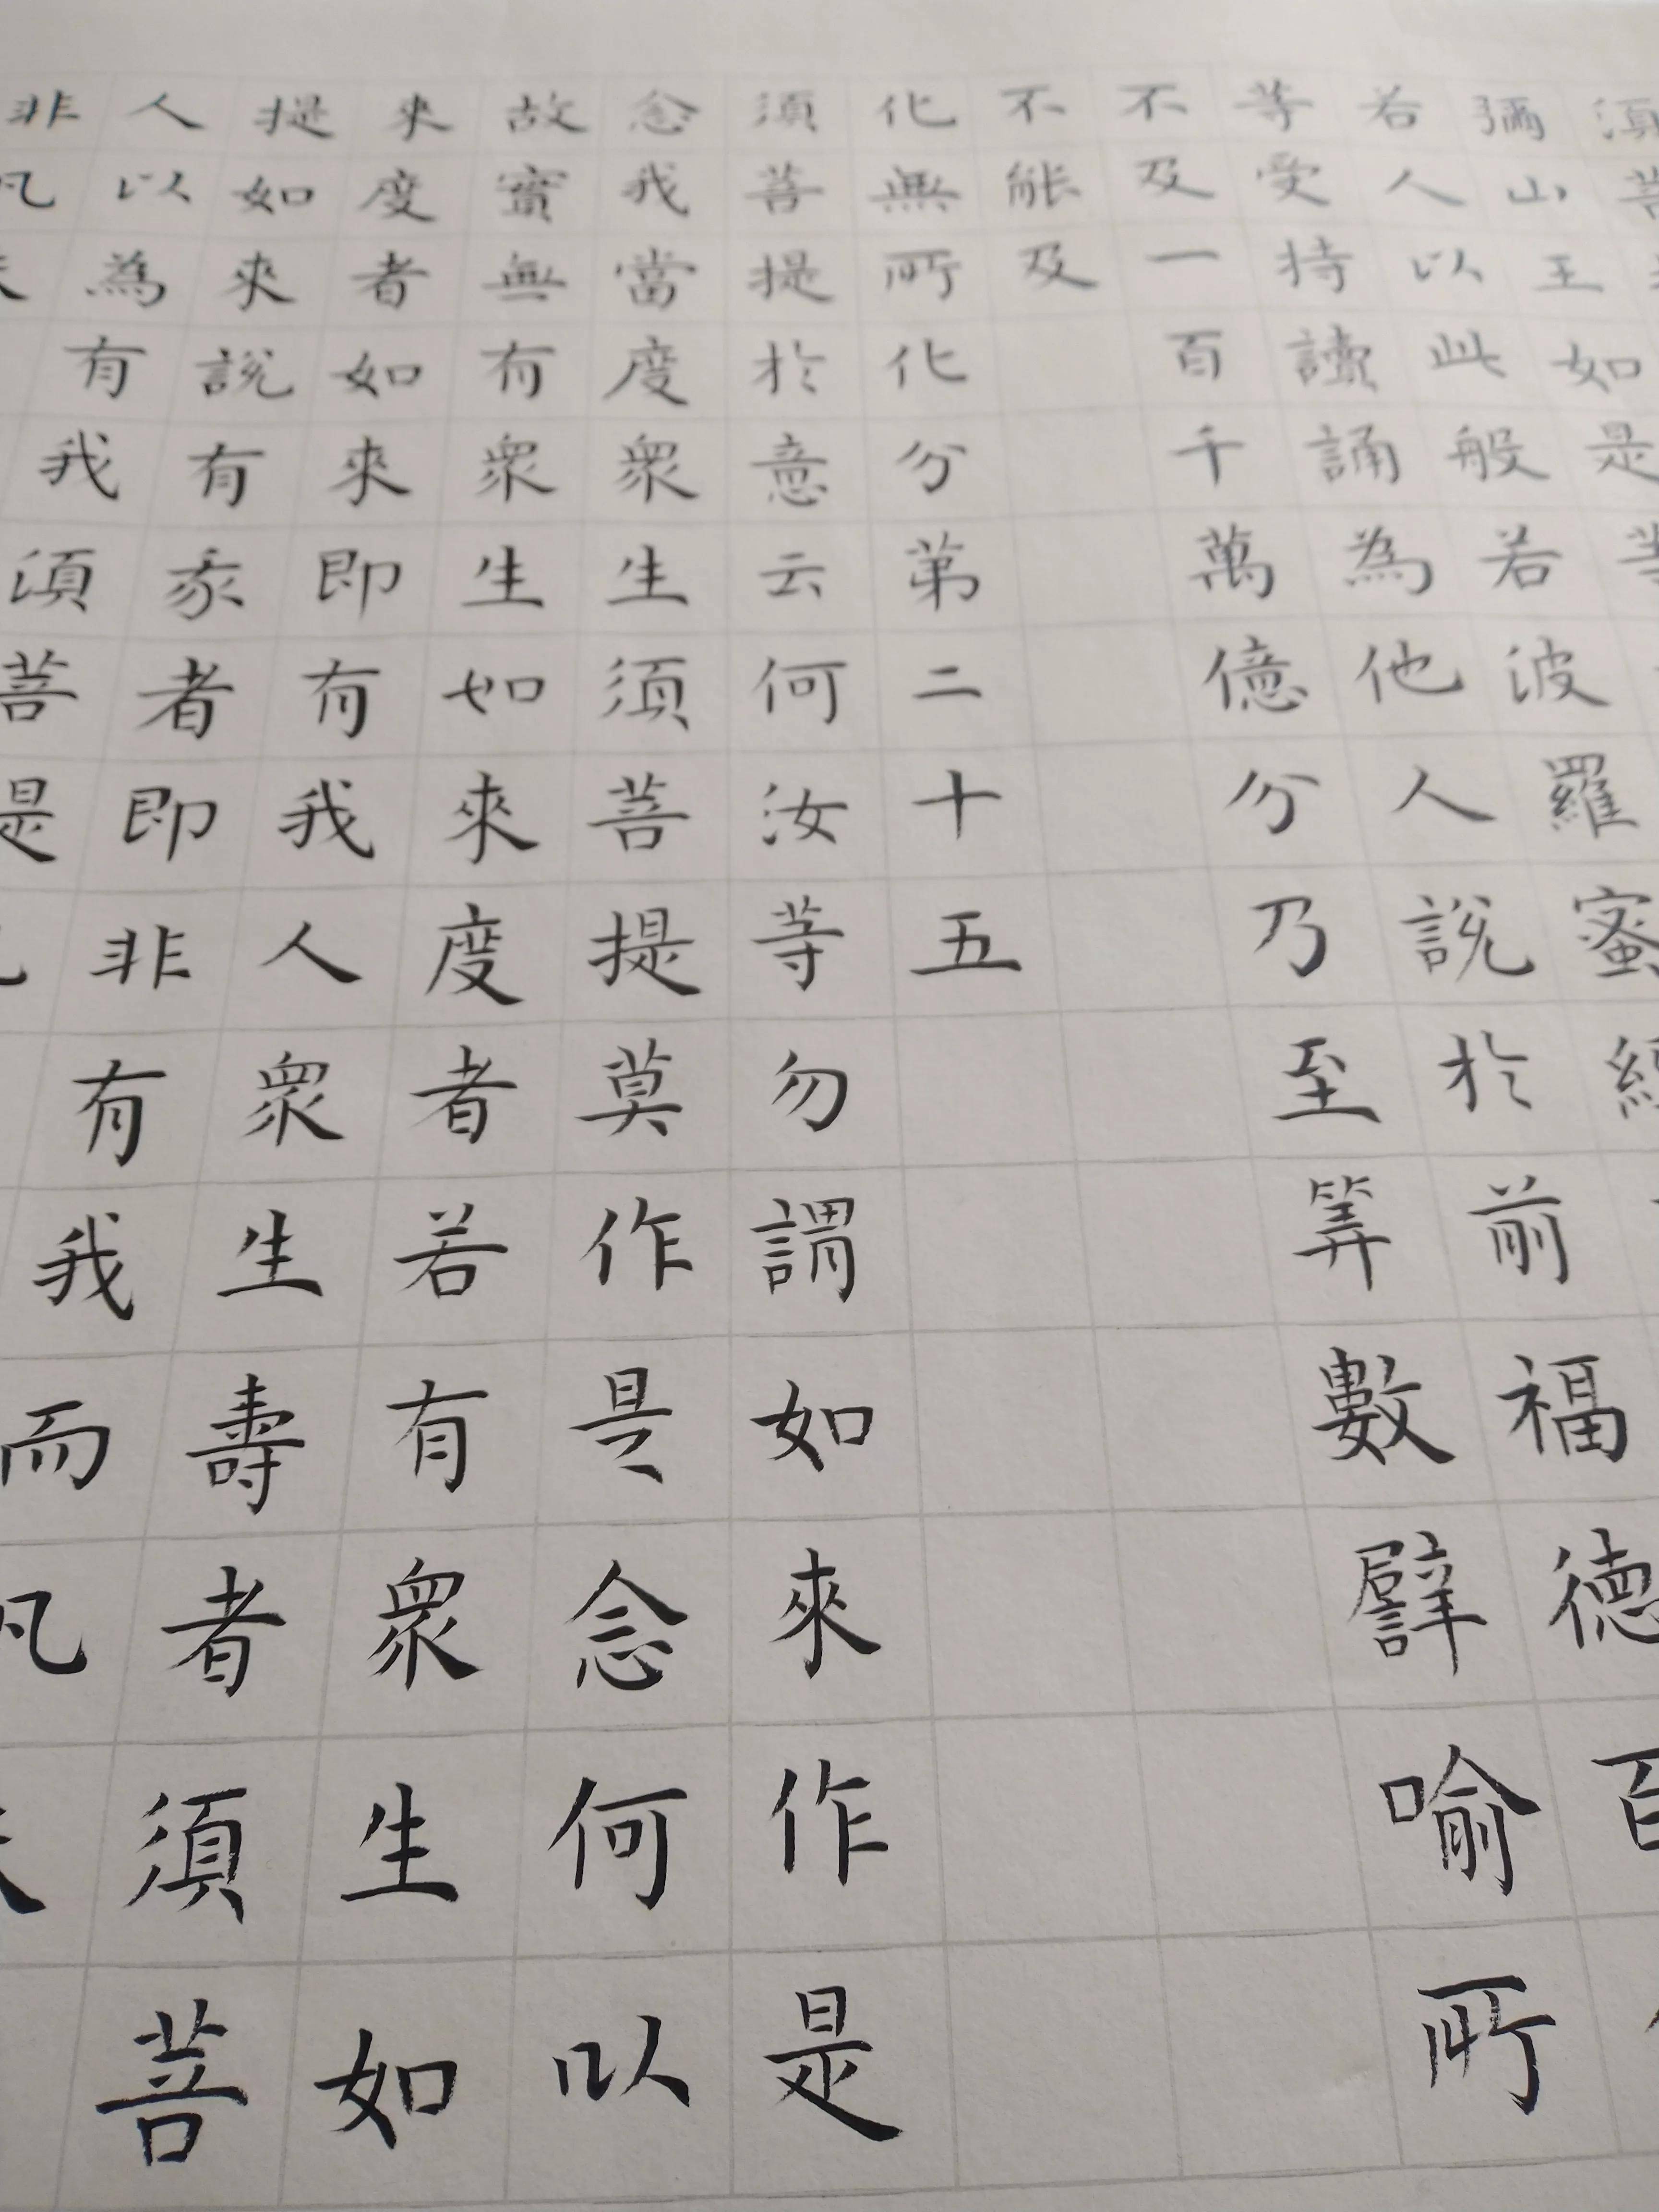 須菩
彌山王如是等
若人以此般若波羅蜜經
等受持讀誦為他人說於前福德百
不及一百千萬億分乃至筭數譬喻所
不能及
化無所化分第二十五
須菩提於意云何汝等勿謂如來作是
念我當度眾生須菩提莫作是念何以
故實無有眾生如來度者若有眾生如
來度者如來即有我人眾生壽者須菩
提如來說有我者即非有我而凡夫
人以為有我須菩提凡
非凡夫